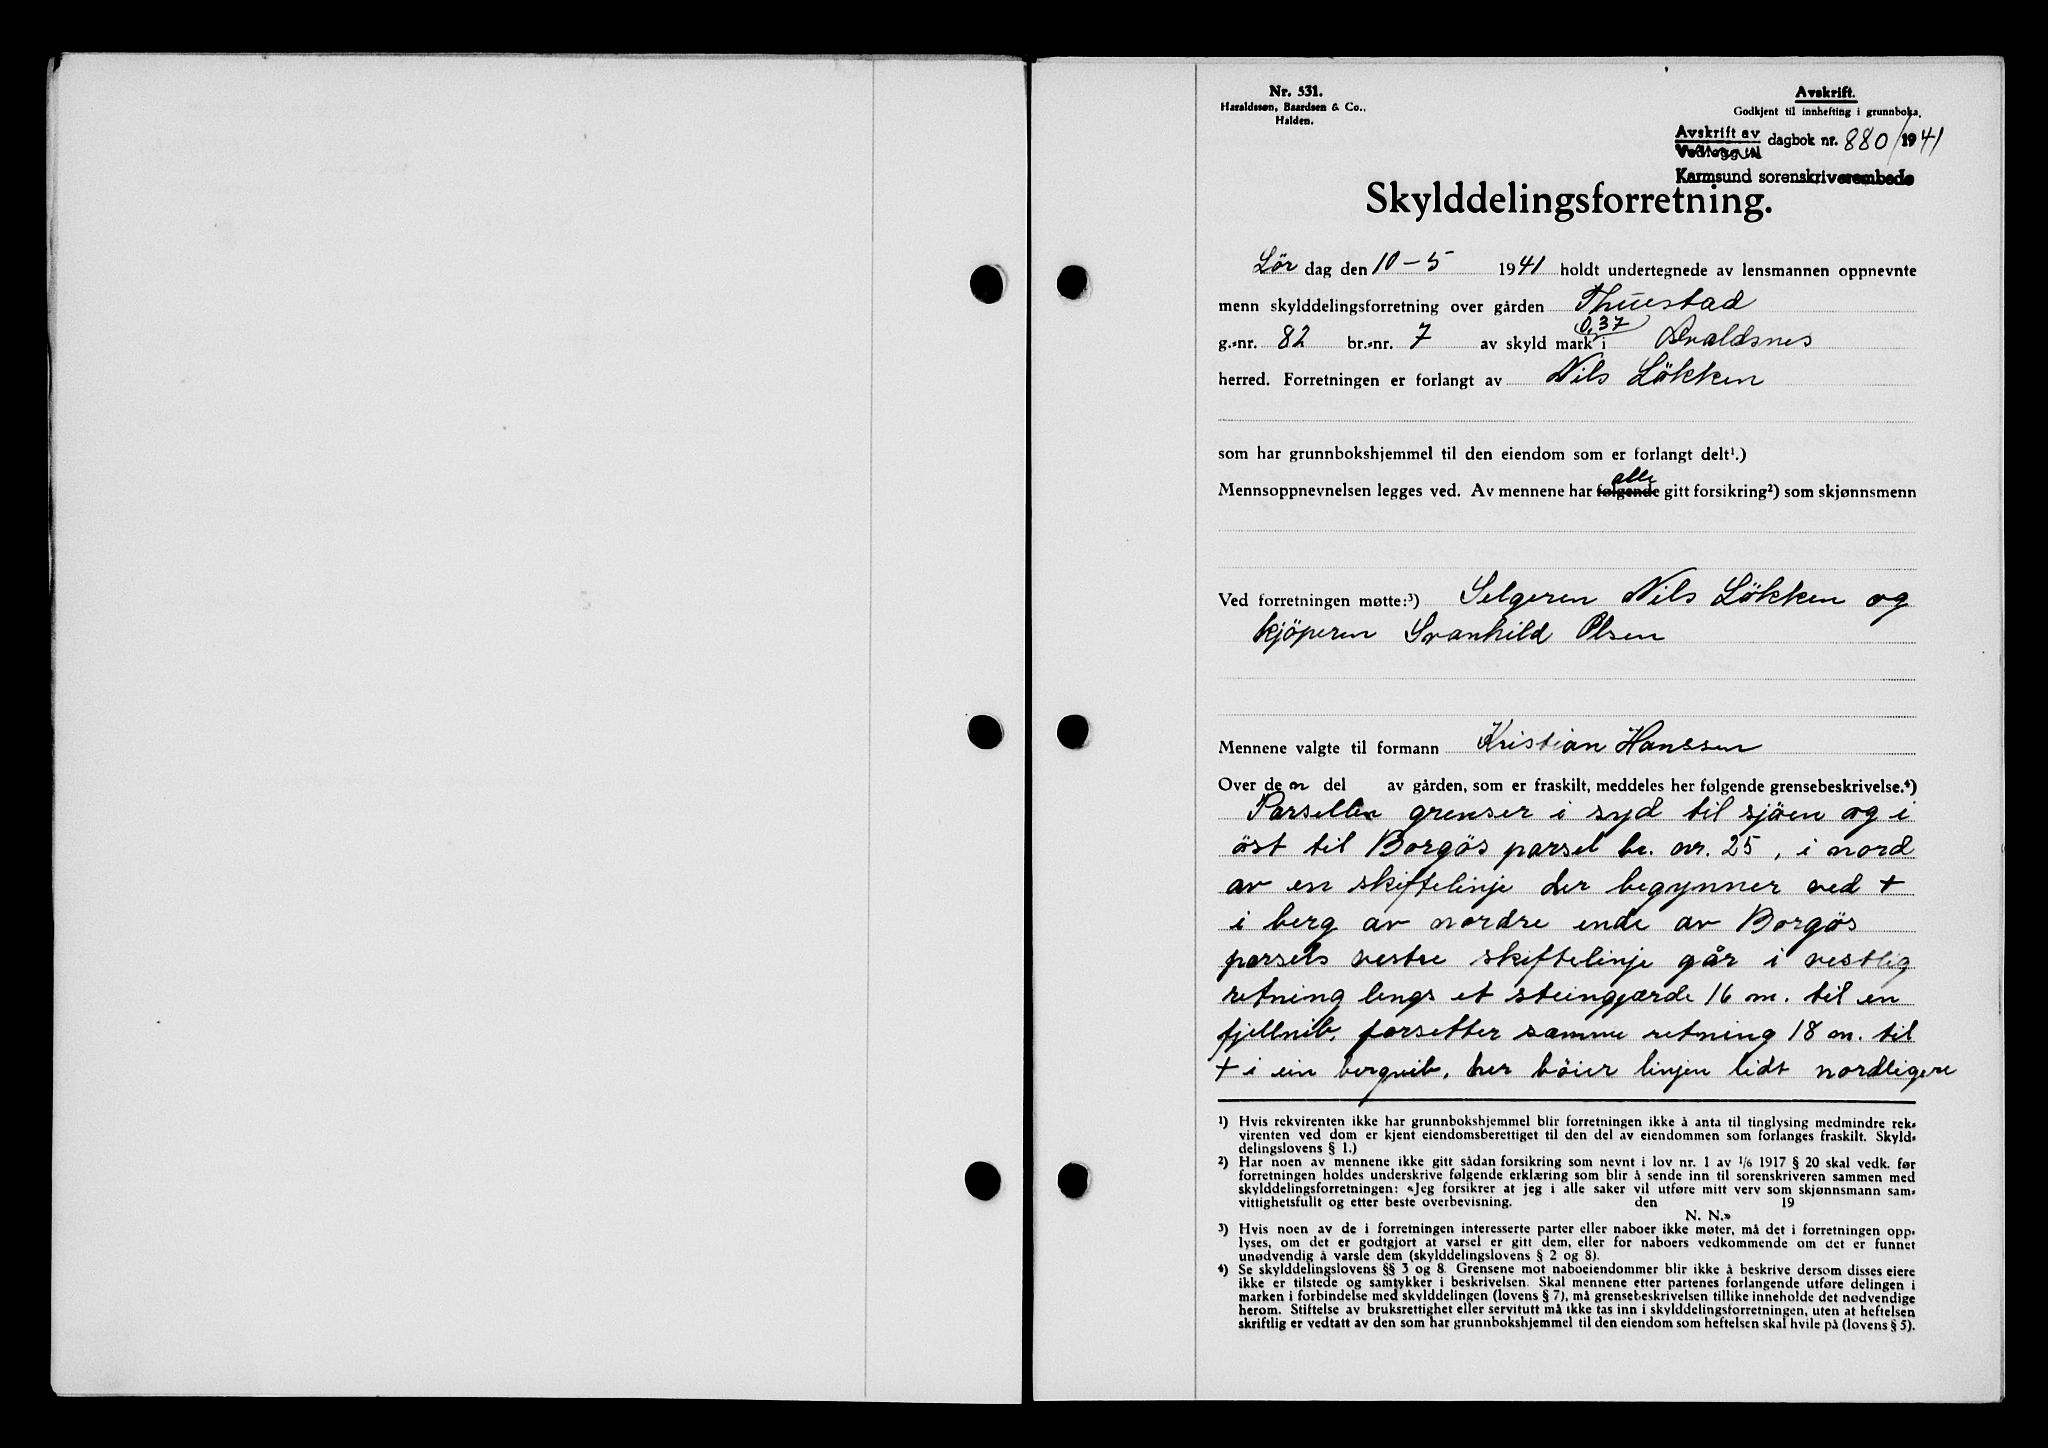 Nr. 531.
Haraldssøn, Baardsen & Co.,
Halden.
Avskrift.
Godkjent til innhefting i grunnboka.
Avskrift av
dagbok nr. 880/1941
Karmsund sorenskriverembede
Skylddelingsforretning.
Lör dag den 10-5 1941 holdt undertegnede av lensmannen oppnevnte
menn skylddelingsforretning over gården Thuestad
0,37
g.-nr. 82 br.-nr. 7 av skyld mark i Avaldsnes
herred. Forretningen er forlangt av Nils Lökken
som har grunnbokshjemmel til den eiendom som er forlangt delt¹.)
alle
Mennsoppnevnelsen legges ved. Av mennene har følgende gitt forsikring²) som skjønnsmenn
Ved forretningen møtte:³) Selgeren Nils Lökken og
kjöperen Svanhild Olsen
Mennene valgte til formann Kristian Hanssen
Over de n del av gården, som er fraskilt, meddeles her følgende grensebeskrivelse.⁴)
Parsellen grenser i syd til sjöen og i
öst til Borgös parsel br. nr. 25, i nord
av en skiftelinje der begynner ved +
i berg av nordre ende av Borgös
parsels vestre skiftelinje går i vestlig
retning lengs et steingjærde 16 m. til en
fjellnib, forsetter samme retning 18 m. til
+ i ein bergnib, her böier linjen lidt nordligere
¹) Hvis rekvirenten ikke har grunnbokshjemmel blir forretningen ikke å anta til tinglysing medmindre rek-
virenten ved dom er kjent eiendomsberettiget til den del av eiendommen som forlanges fraskilt. Skyld-
delingslovens § 1.)
²) Har noen av mennene ikke gitt sådan forsikring som nevnt i lov nr. 1 av 1/6 1917 § 20 skal vedk. før
forretningen holdes underskrive følgende erklæring som blir å sende inn til sorenskriveren sammen med
skylddelingsforretningen: «Jeg forsikrer at jeg i alle saker vil utføre mitt verv som skjønnsmann sam-
vittighetsfullt og etter beste overbevisning. den 19
N. N.»
³) Hvis noen av de i forretningen interesserte parter eller naboer ikke møter, må det i forretningen opp-
lyses, om det er godtgjort at varsel er gitt dem, eller for naboers vedkommende om det er funnet
unødvendig å varsle dem (skylddelingslovens § 2 og 8).
⁴) Se skylddelingslovens §§ 3 og 8. Grensene mot naboeiendommer blir ikke å beskrive dersom disses eiere
ikke er tilstede og samtykker i beskrivelsen. Skal mennene etter partenes forlangende utføre delingen i
marken i forbindelse med skylddelingen (lovens § 7), må grensebeskrivelsen tillike inneholde det nødvendige
herom. Stiftelse av bruksrettighet eller servitutt må ikke tas inn i skylddelingsforretningen, uten at heftelsen
skriftlig er vedtatt av den som har grunnbokshjemmel til den eiendom som heftelsen skal hvile på (lovens § 5).